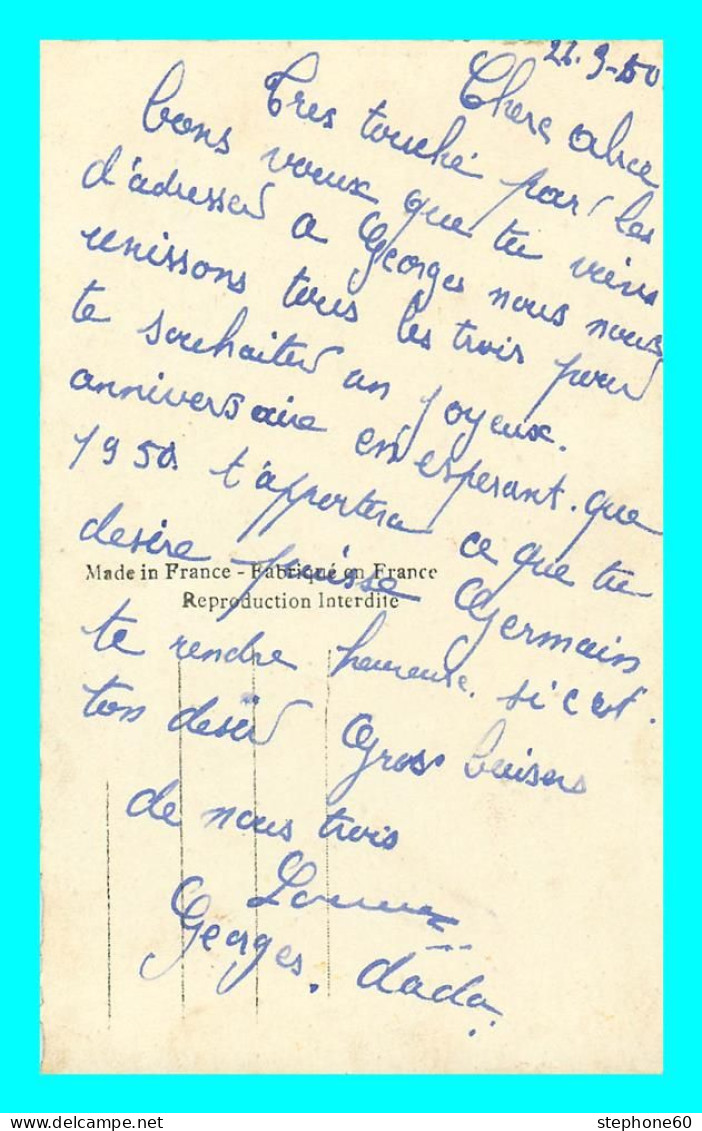 22.9-50
Chere alice
Tres touché par les
bons voeux que tu viens
d'adresser a Georges nous nous
unissons tous les trois pour
te souhaiter un joyeux.
anniversaire en esperant. que
1950 t'apportera ce que tu
desire puisse Germain
Made in France - Fabriqué en France
Reproduction Interdite
te rendre heureuse. si c'est.
ton desir Gros baisers
de nous trois
Georges. dada.
stephone60